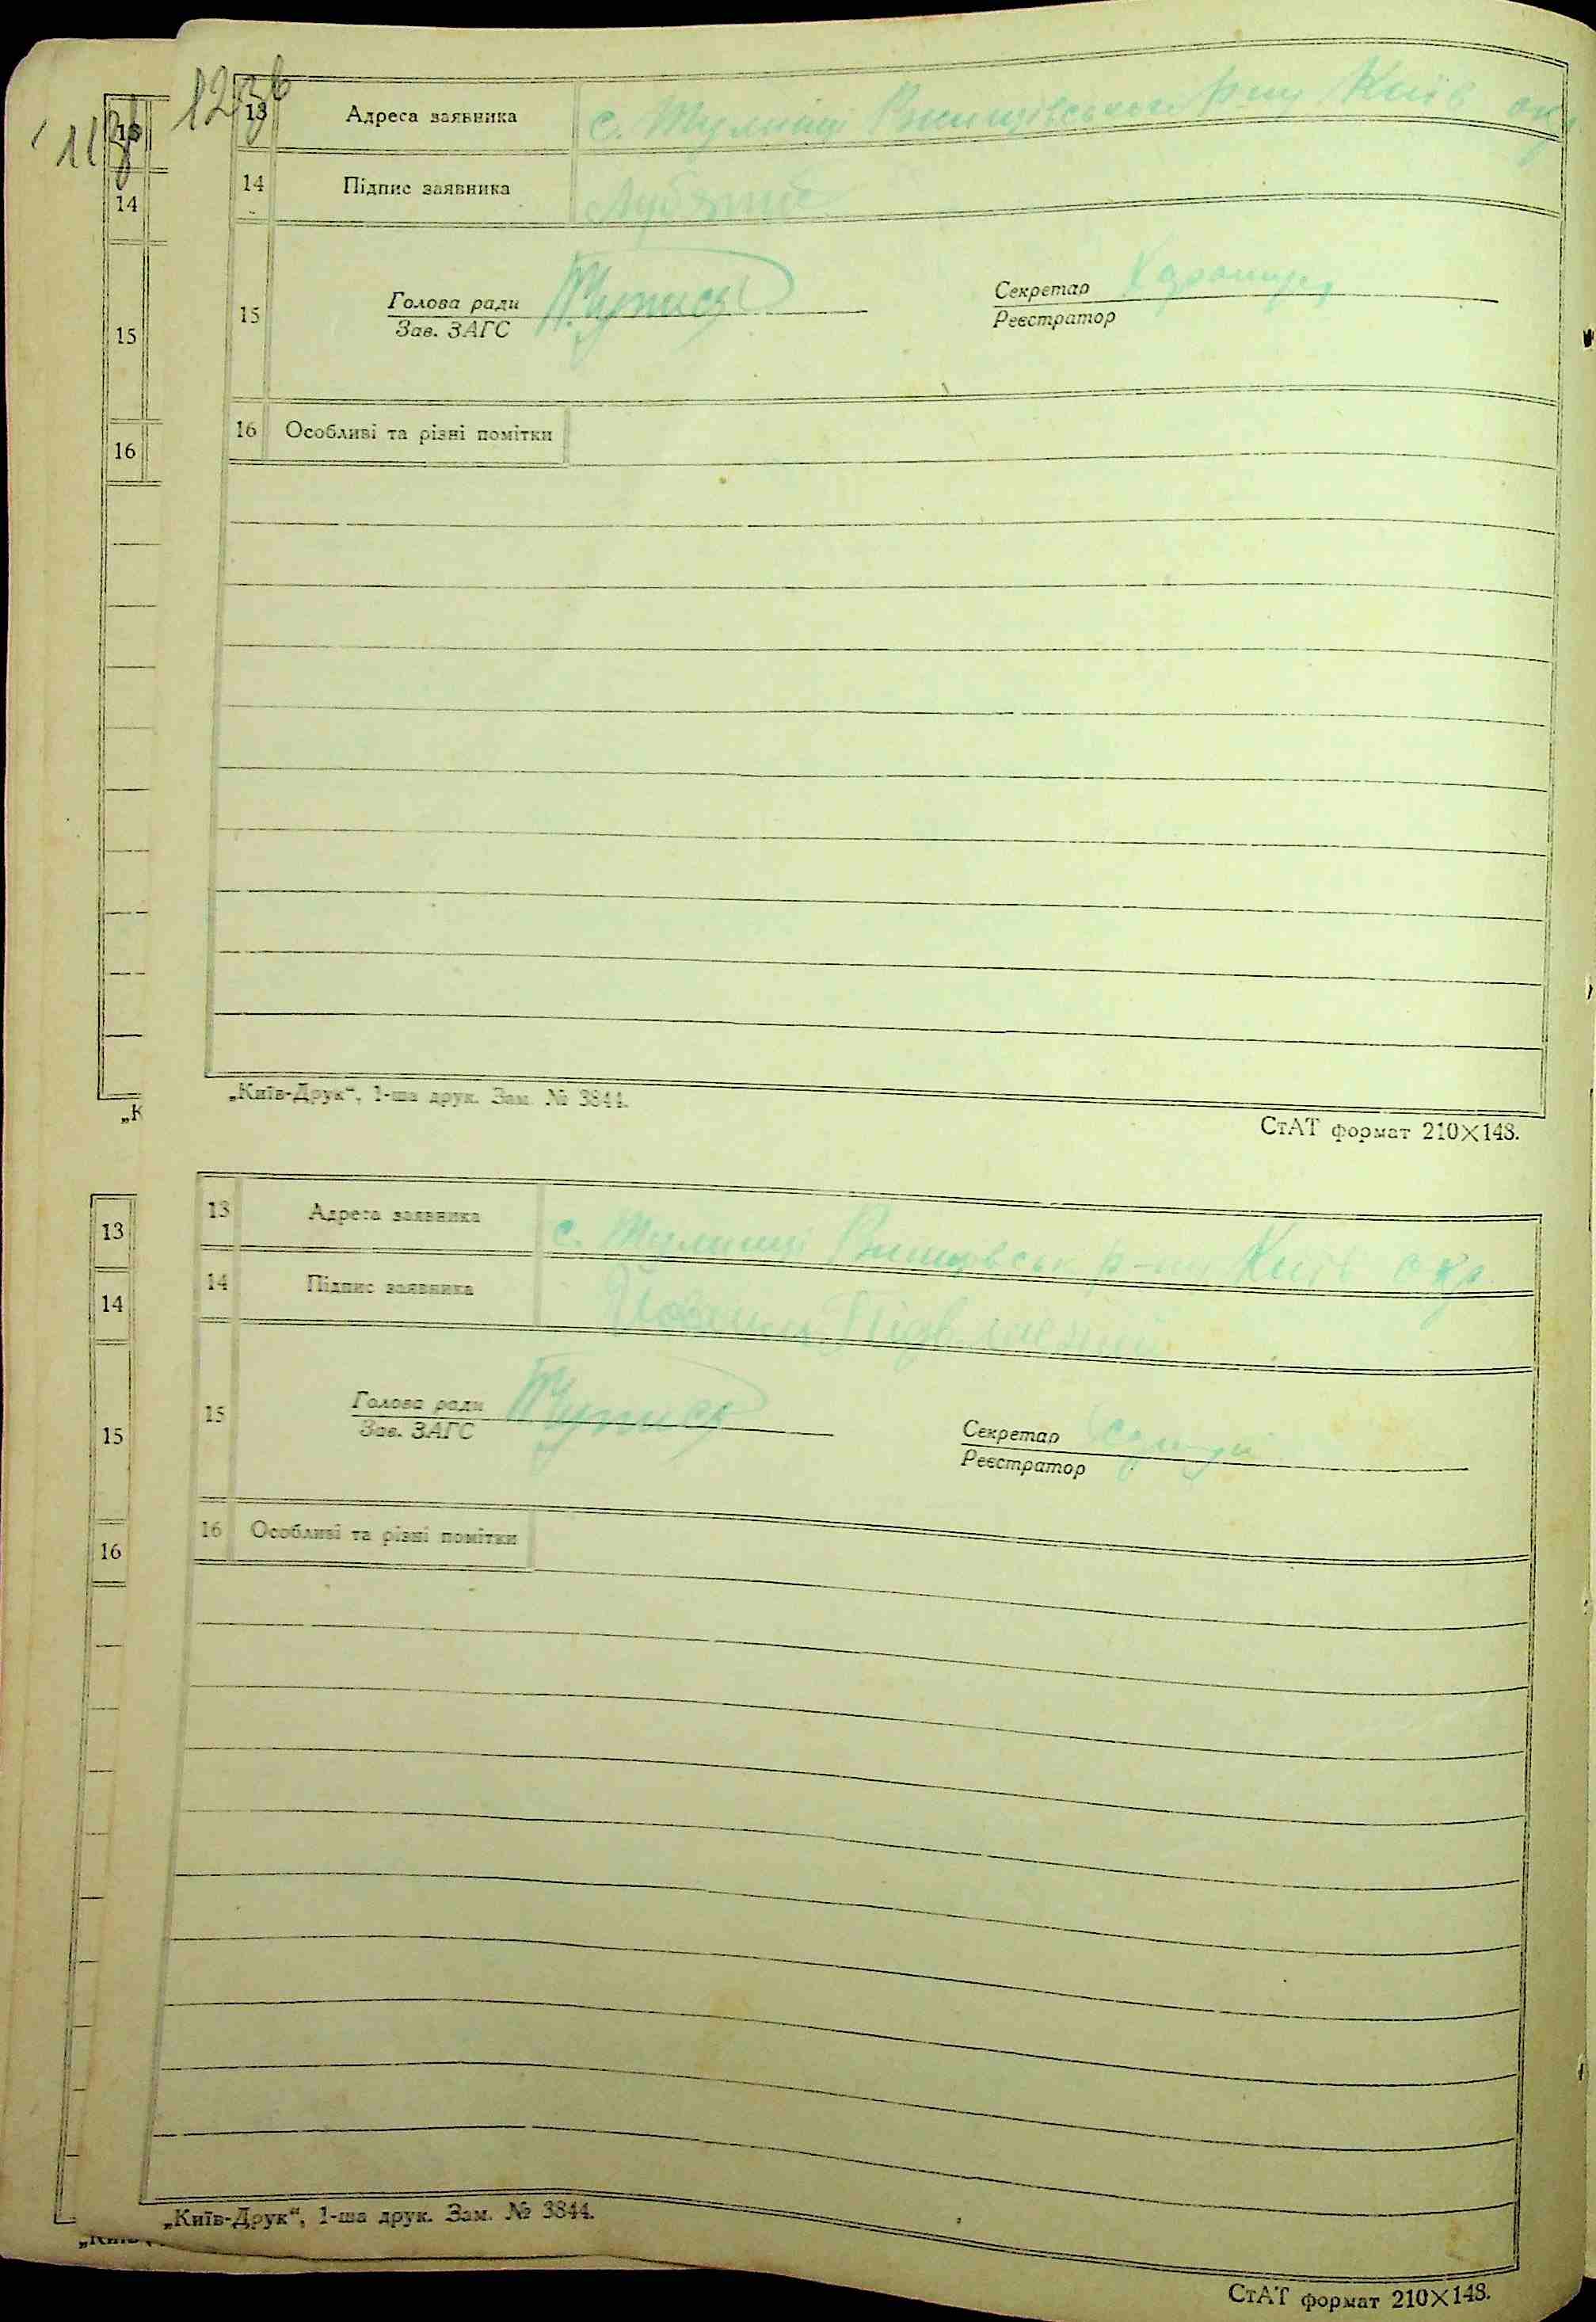 123б
13 Адреса заявника с. Тулинці Ржищівського р-ну Київ окр
14 Підпис заявника
15 Голова ради Секретар
Зав. ЗАГС Реєстратор
16 Особливі та різні помітки
„Київ-Друк“, 1-ша друк. Зам. № 3844.
СтАТ формат 210×148.
13 Адреса заявника с. Тулинці Ржищівськ р-ну Київ окр
14 Підпис заявника
15 Голова ради Секретар
Зав. ЗАГС Реєстратор
16 Особливі та різні помітки
„Київ-Друк“, 1-ша друк. Зам. № 3844.
СтАТ формат 210×148.
13
14
15
16
„К
13
14
15
16